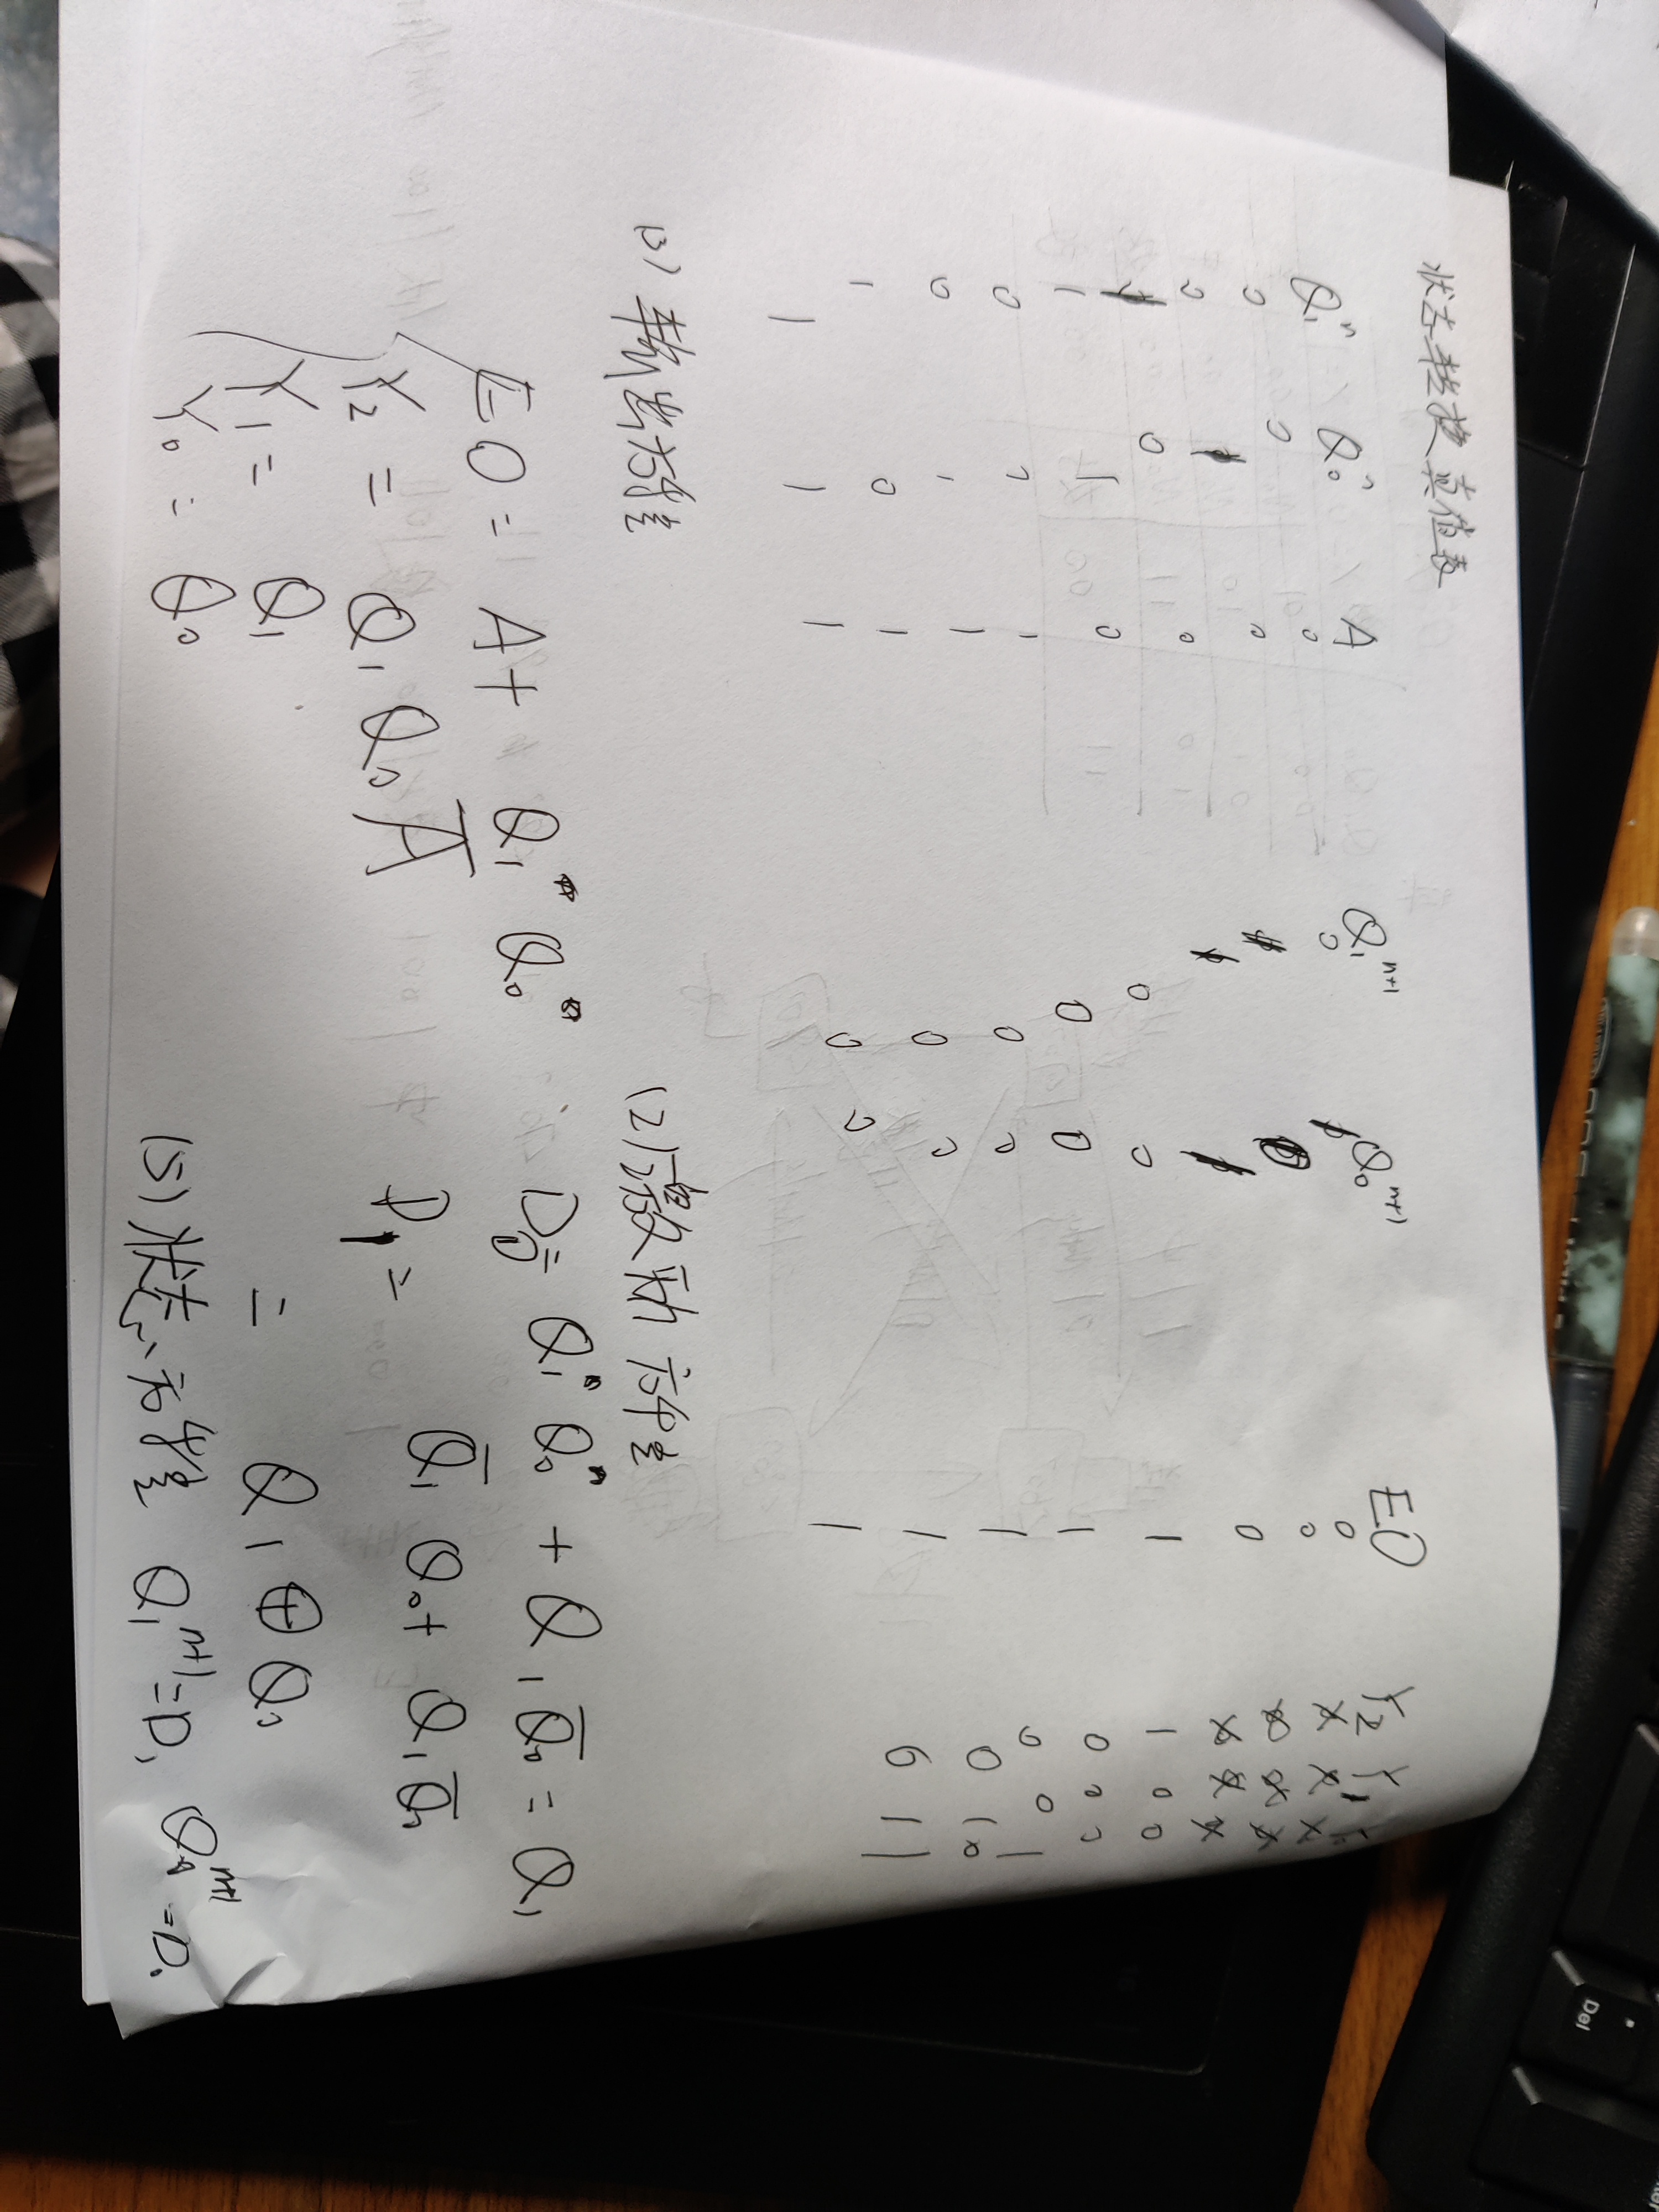 Del
状态转换真值表
Q₁ⁿ Q₀ⁿ A Q₁ⁿ⁺¹ Q₀ⁿ⁺¹ EO Y₂ Y₁
0 0 0 0 0 × × ×
0 1 0 1 0 0 × × ×
1 0 0 1 1 0 × × ×
1 1 0 0 0 1 1 0 0
0 0 1 0 0 1 0 0 0
0 1 1 0 0 1 0 0 1
1 0 1 0 0 1 0 1 0
1 1 1 0 0 1 0 1 1
输出方程
EO = A + Q₁ Q₀
Y₂ = Q₁ Q₀ A̅
Y₁ = Q₁
Y₀ = Q₀
(2) 激励方程
D₀ = Q₁ⁿ Q₀ⁿ + Q₁ Q̅₀ = Q₁
D₁ = Q̅₁ Q₀ + Q₁ Q̅₀
= Q₁ ⊕ Q₀
(5) 状态方程 Q₁ⁿ⁺¹ = D₁ Q₀ⁿ⁺¹ = D₀